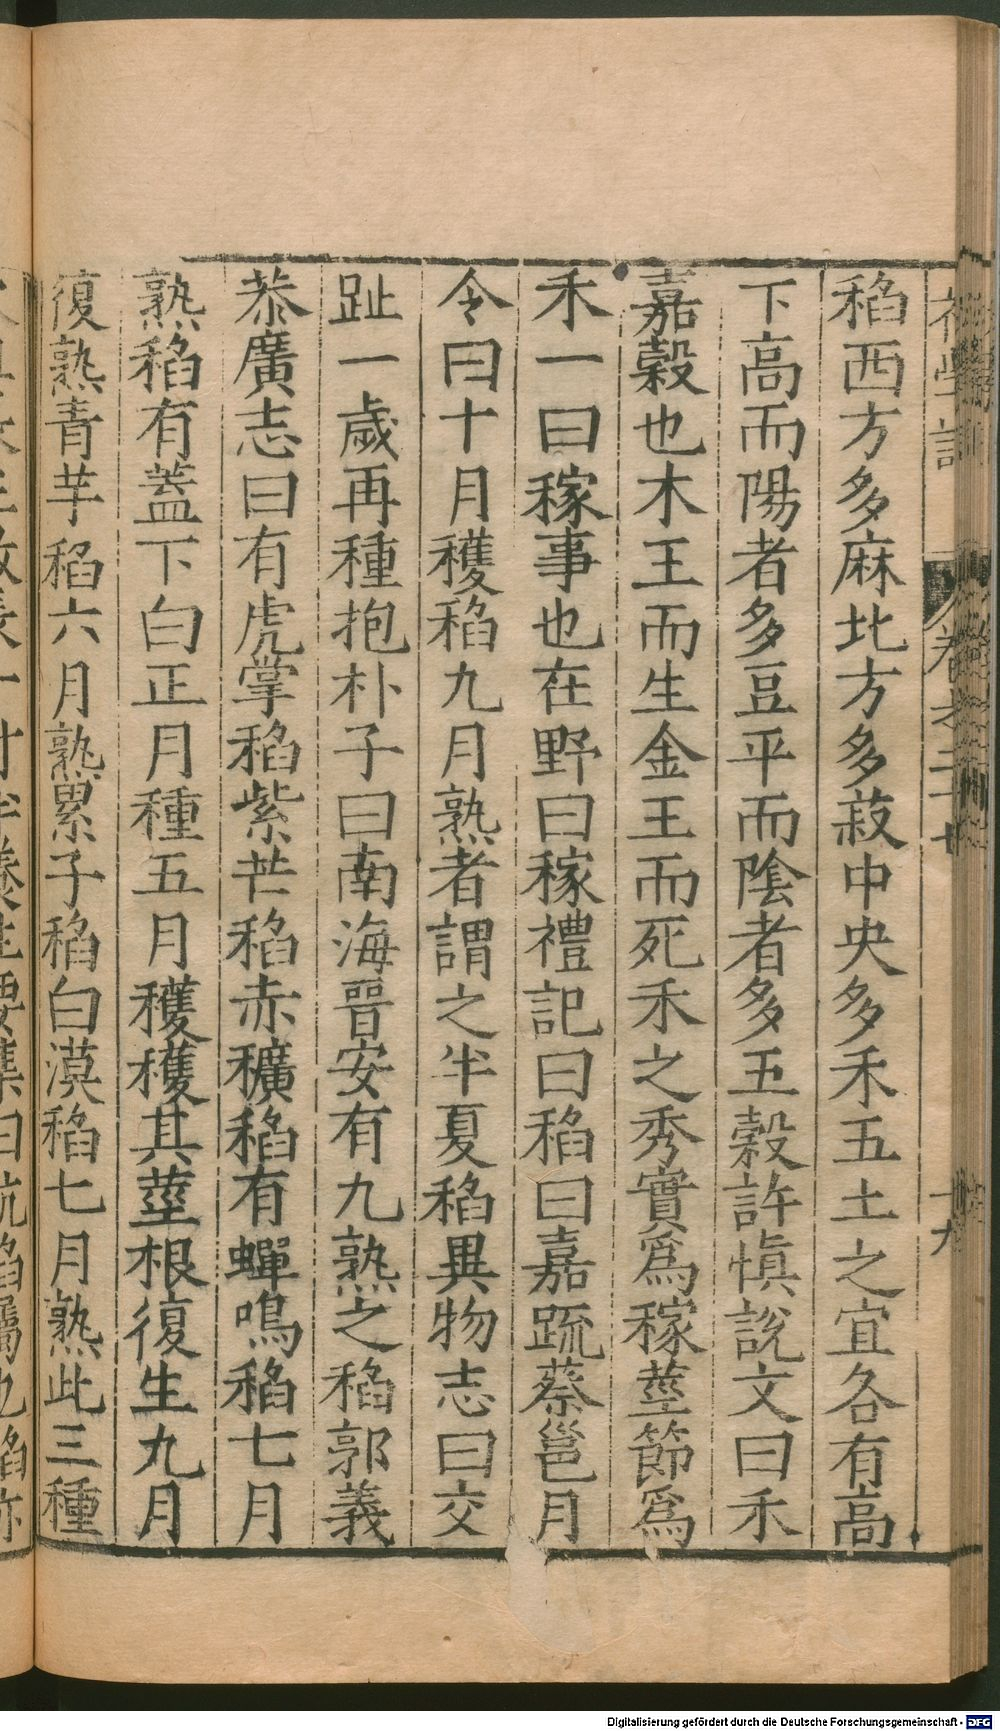 稻西方多麻北方多菽中央多禾五土之宜各有高
下高而陽者多豆平而陰者多五穀許慎說文曰禾
嘉穀也木王而生金王而死禾之秀實爲稼莖節爲
禾一曰稼事也在野曰稼禮記曰稻曰嘉蔬蔡邕月
令曰十月穫稻九月熟者謂之半夏稻異物志曰交
趾一歲再種抱朴子曰南海晉安有九熟之稻郭義
恭廣志曰有虎掌稻紫芒稻赤穬稻有蟬鳴稻七月
熟稻有蓋下白正月種五月穫穫其莖根復生九月
復熟青芋稻六月熟累子稻白漠稻七月熟此三種
Digitalisierung gefördert durch die Deutsche Forschungsgemeinschaft - DFG